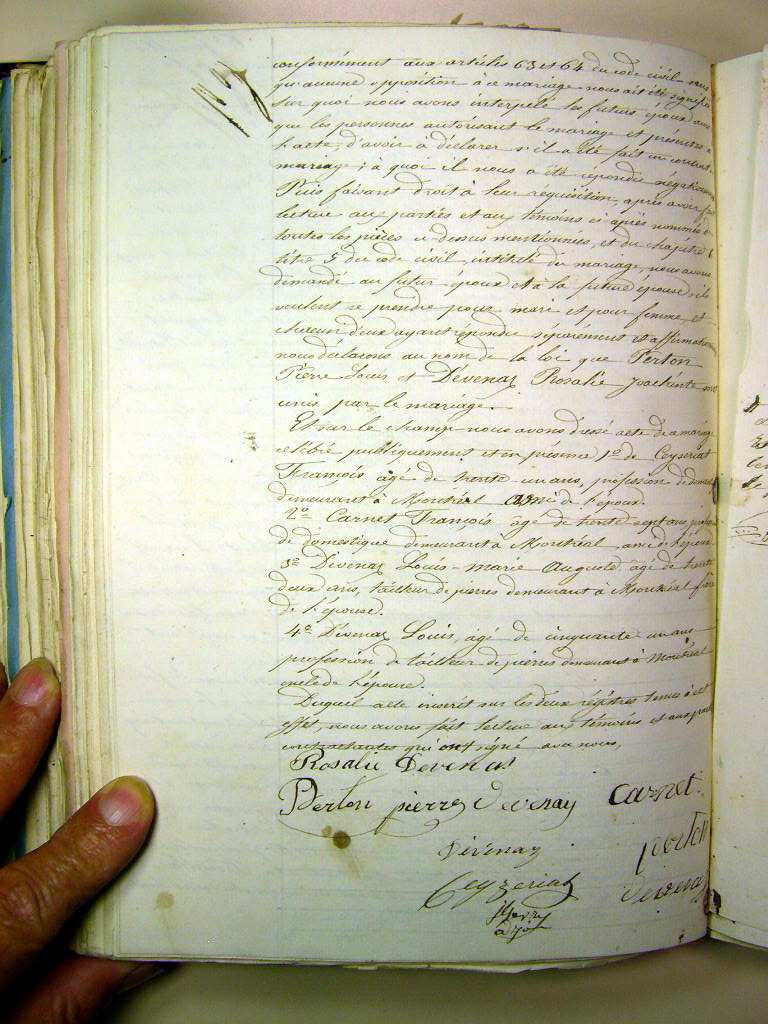 conformément aux articles 63 et 64 du code civil sans
qu'aucune opposition à ce mariage nous ait été signifiée
Sur quoi nous avons interpelé les futurs époux ainsi
que les personnes autorisant le mariage et présentes à
l'acte, d'avoir à déclarer s'il a été fait un contrat
mariage; à quoi il nous a été répondu négativement
Puis faisant droit à leur réquisition, après avoir fait
lecture aux parties et aux témoins ci après nommés de
toutes les pièces ci dessus mentionnées, et du chapitre 6
titre 5 du code civil, intitulé du mariage, nous avons
demandé au futur époux et à la future épouse s'ils
veulent se prendre pour mari et pour femme, et
chacun d'eux ayant répondu séparément et affirmativement
nous déclarons au nom de la loi que Perton
Pierre Louis et Dévenas Rosalie Joachinte sont
unis par le mariage.
Et sur le champ nous avons dressé acte du mariage
célébré publiquement et en présence 1o de Ceyseriat
François âgé de trente un ans, profession de
demeurant à Montréal ami de l'époux.
2o Carnet François âgé de trente sept ans,
de domestique demeurant à Montréal, ami de l'époux
3o Dévenas Louis-marie Auguste âgé de trente
deux ans, tailleur de pierres demeurant à Montréal frère
de l'épouse.
4o Dévenas Louis, âgé de cinquante un ans
profession de tailleur de pierres demeurant à Montréal
oncle de l'épouse.
Duquel acte inscrit sur les deux régistres tenus à cet
effet, nous avons fait lecture aux témoins et aux parties
contractantes qui ont signé avec nous,
Rosalie Devenas
Perton pierre devenay carnet
Dévenay perton
Ceyzeriat devenay